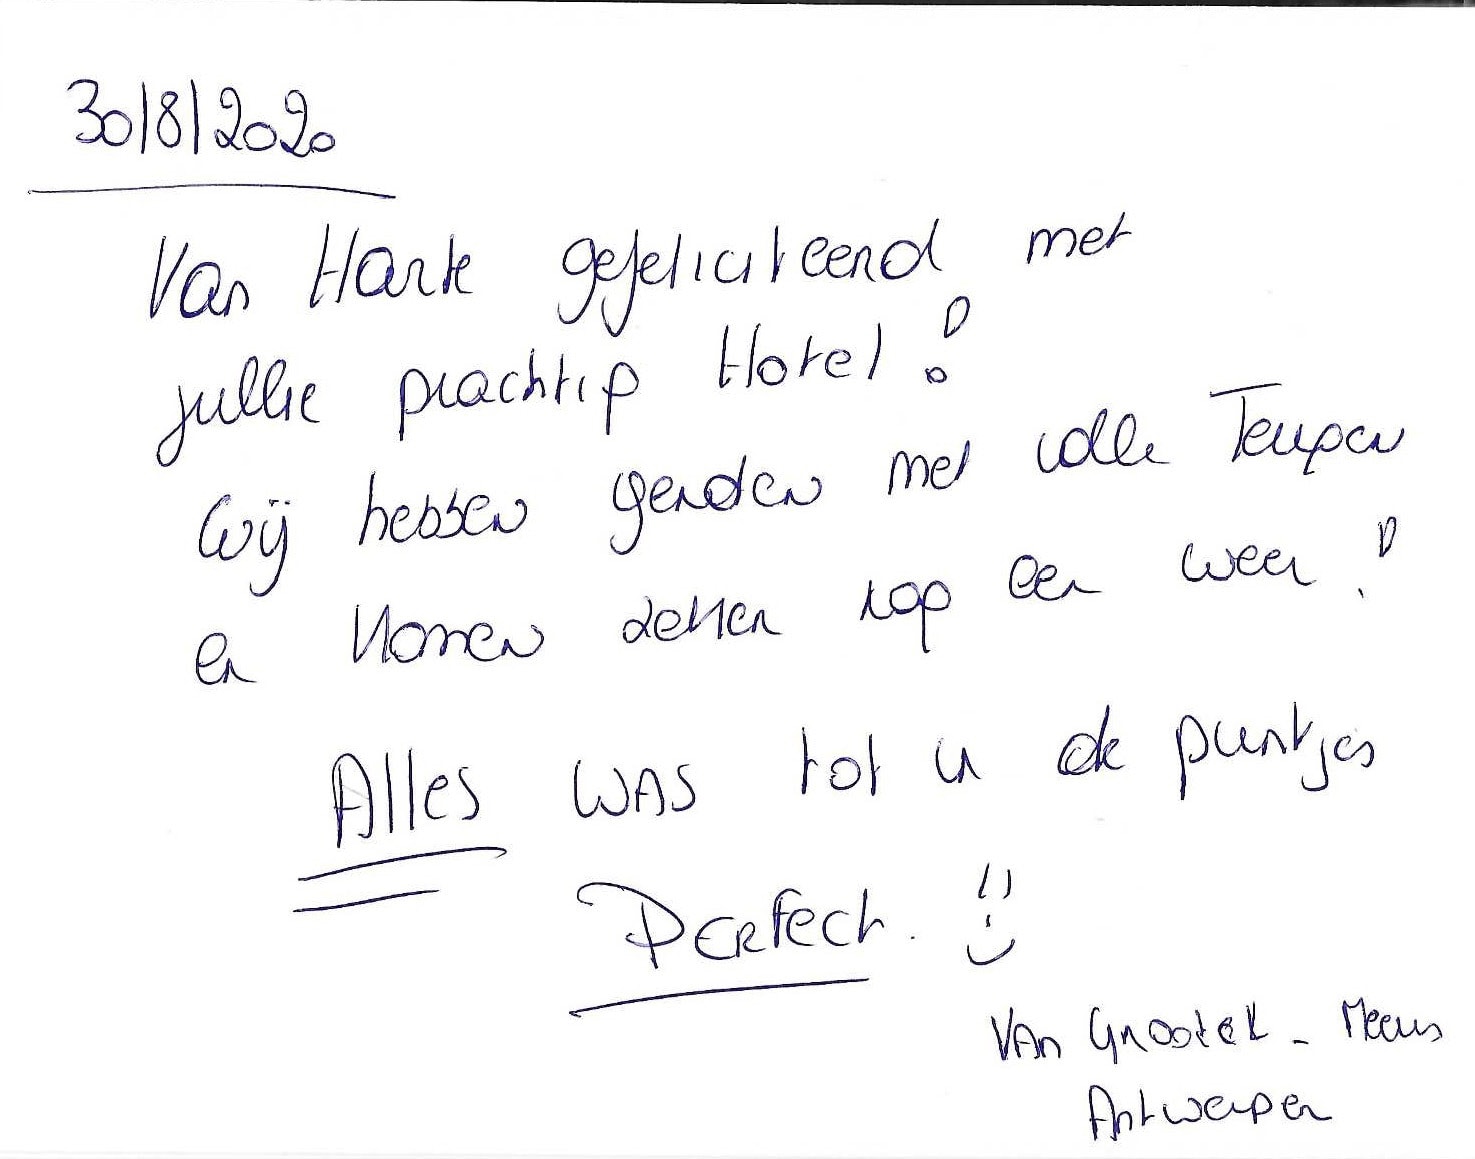 30/8/2020
Van Harte gefeliciteerd met
jullie prachtig Hotel!
Wij hebben genoten met volle Teugen
en komen zeker nog een weer!
Alles was tot in de puntjes
Perfect.
Van Grootel - Meeus
Antwerpen